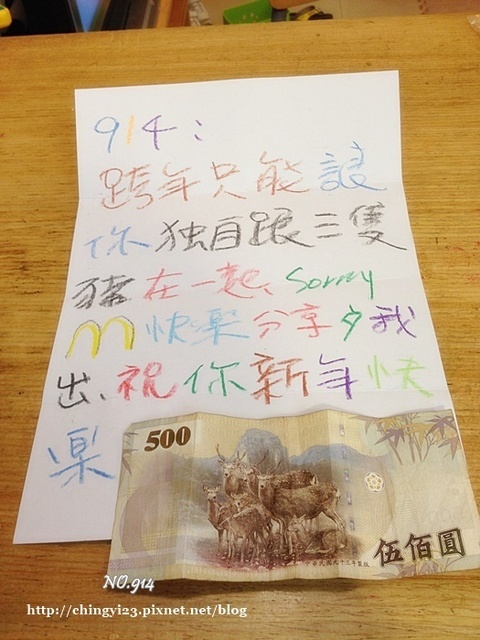 914:
跨年只能讓
你独自跟三隻
猪在一起、Sorry
M 快楽分享ㄉ我
出、祝你新年快
楽
500
中華民國九十三年製版
伍佰圓
NO.914
http://chingyi23.pixnet.net/blog